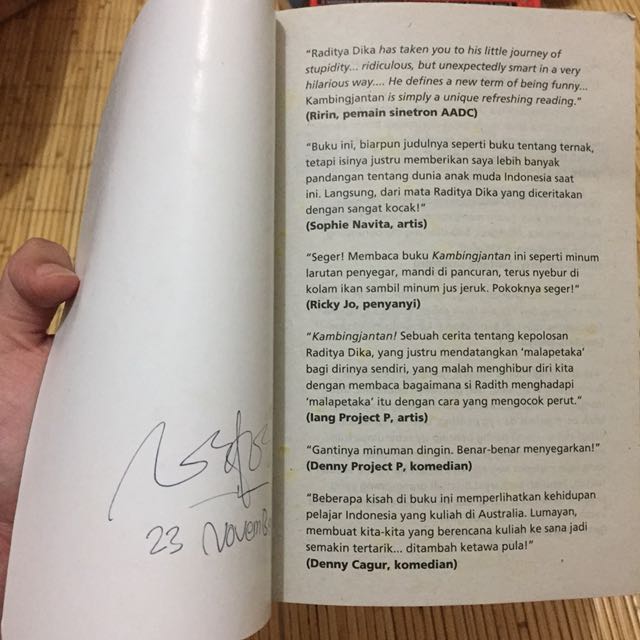 23 Novemb
“Raditya Dika has taken you to his little journey of
stupidity... ridiculous, but unexpectedly smart in a very
hilarious way.... He defines a new term of being funny...
Kambingjantan is simply a unique refreshing reading.”
(Ririn, pemain sinetron AADC)
“Buku ini, biarpun judulnya seperti buku tentang ternak,
tetapi isinya justru memberikan saya lebih banyak
pandangan tentang dunia anak muda Indonesia saat
ini. Langsung, dari mata Raditya Dika yang diceritakan
dengan sangat kocak!”
(Sophie Navita, artis)
“Seger! Membaca buku Kambingjantan ini seperti minum
larutan penyegar, mandi di pancuran, terus nyebur di
kolam ikan sambil minum jus jeruk. Pokoknya seger!”
(Ricky Jo, penyanyi)
“Kambingjantan! Sebuah cerita tentang kepolosan
Raditya Dika, yang justru mendatangkan ‘malapetaka’
bagi dirinya sendiri, yang malah menghibur diri kita
dengan membaca bagaimana si Radith menghadapi
‘malapetaka’ itu dengan cara yang mengocok perut.”
(Iang Project P, artis)
“Gantinya minuman dingin. Benar-benar menyegarkan!”
(Denny Project P, komedian)
“Beberapa kisah di buku ini memperlihatkan kehidupan
pelajar Indonesia yang kuliah di Australia. Lumayan,
membuat kita-kita yang berencana kuliah ke sana jadi
semakin tertarik... ditambah ketawa pula!”
(Denny Cagur, komedian)